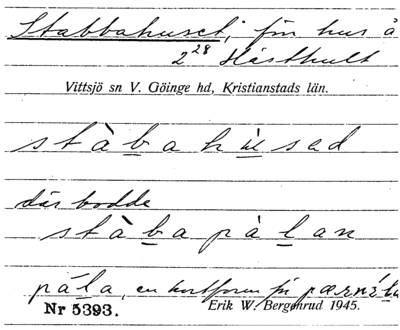 Stabbahuset, förr hus å
2²⁸ Hästhult
Vittsjö sn V. Göinge hd, Kristianstads län.
stàbahùsad
där bodde
stàbapàlan
pála, en kortform för
Nr 5393.
Erik W. Bergenrud 1945.